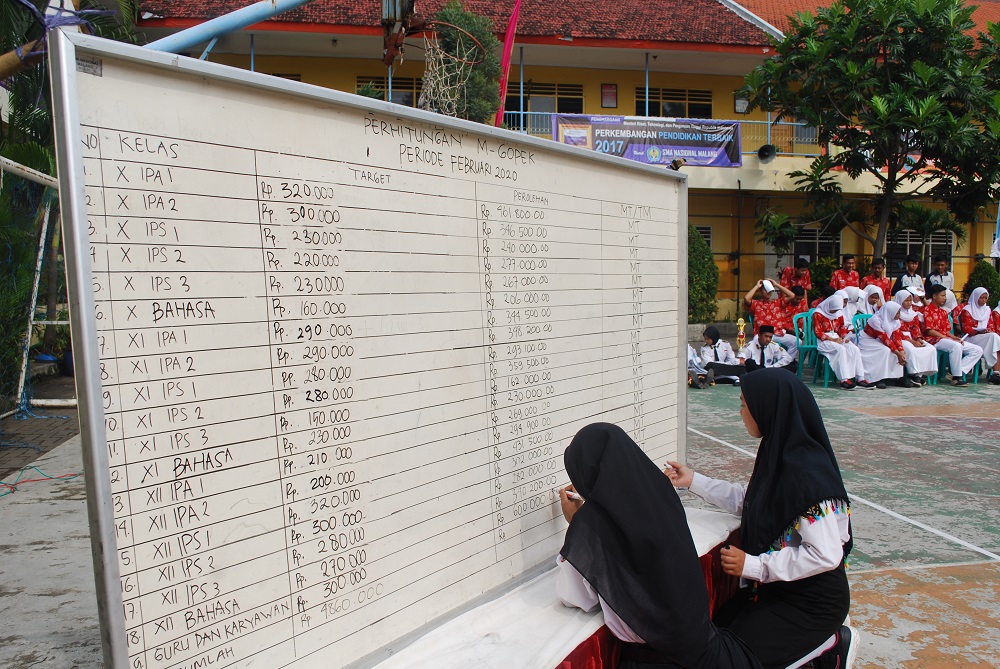 PERHITUNGAN M-GOPEK
PERIODE FEBRUARI 2020
NO KELAS TARGET PEROLEHAN MT/TM
1. X IPA 1 Rp. 320.000 Rp. 461 800.00 MT
2. X IPA 2 Rp. 300.000 Rp. 346 500.00 MT
3. X IPS 1 Rp. 230.000 Rp. 240 000.00 MT
4. X IPS 2 Rp. 220.000 Rp. 277 000.00 MT
5. X IPS 3 Rp. 230.000 Rp. 267 000.00 MT
6. X BAHASA Rp. 160.000 Rp. 206 000.00 MT
7. XI IPA 1 Rp. 290.000 Rp. 344 500.00 MT
8. XI IPA 2 Rp. 290.000 Rp. 348 200.00 MT
9. XI IPS 1 Rp. 280.000 Rp. 293 100.00 MT
10. XI IPS 2 Rp. 280.000 Rp. 353 500.00 MT
11. XI IPS 3 Rp. 150.000 Rp. 162 000.00 MT
12. XI BAHASA Rp. 230.000 Rp. 230.000.00 MT
13. XII IPA 1 Rp. 210.000 Rp. 269 000.00 MT
14. XII IPA 2 Rp. 200.000 Rp. 294 900.00 MT
15. XII IPS 1 Rp. 320.000 Rp. 431 500.00
16. XII IPS 2 Rp. 300.000 Rp. 352 000.00
17. XII IPS 3 Rp. 280.000 Rp. 282 000.00
18. XII BAHASA Rp. 270.000 Rp. 310 200.00
19. GURU DAN KARYAWAN Rp. 300.000 Rp. 600 000.00
JUMLAH Rp. 4860.000
PERKEMBANGAN PENDIDIKAN TERBAIK
2017
SMA NASIONAL MALANG